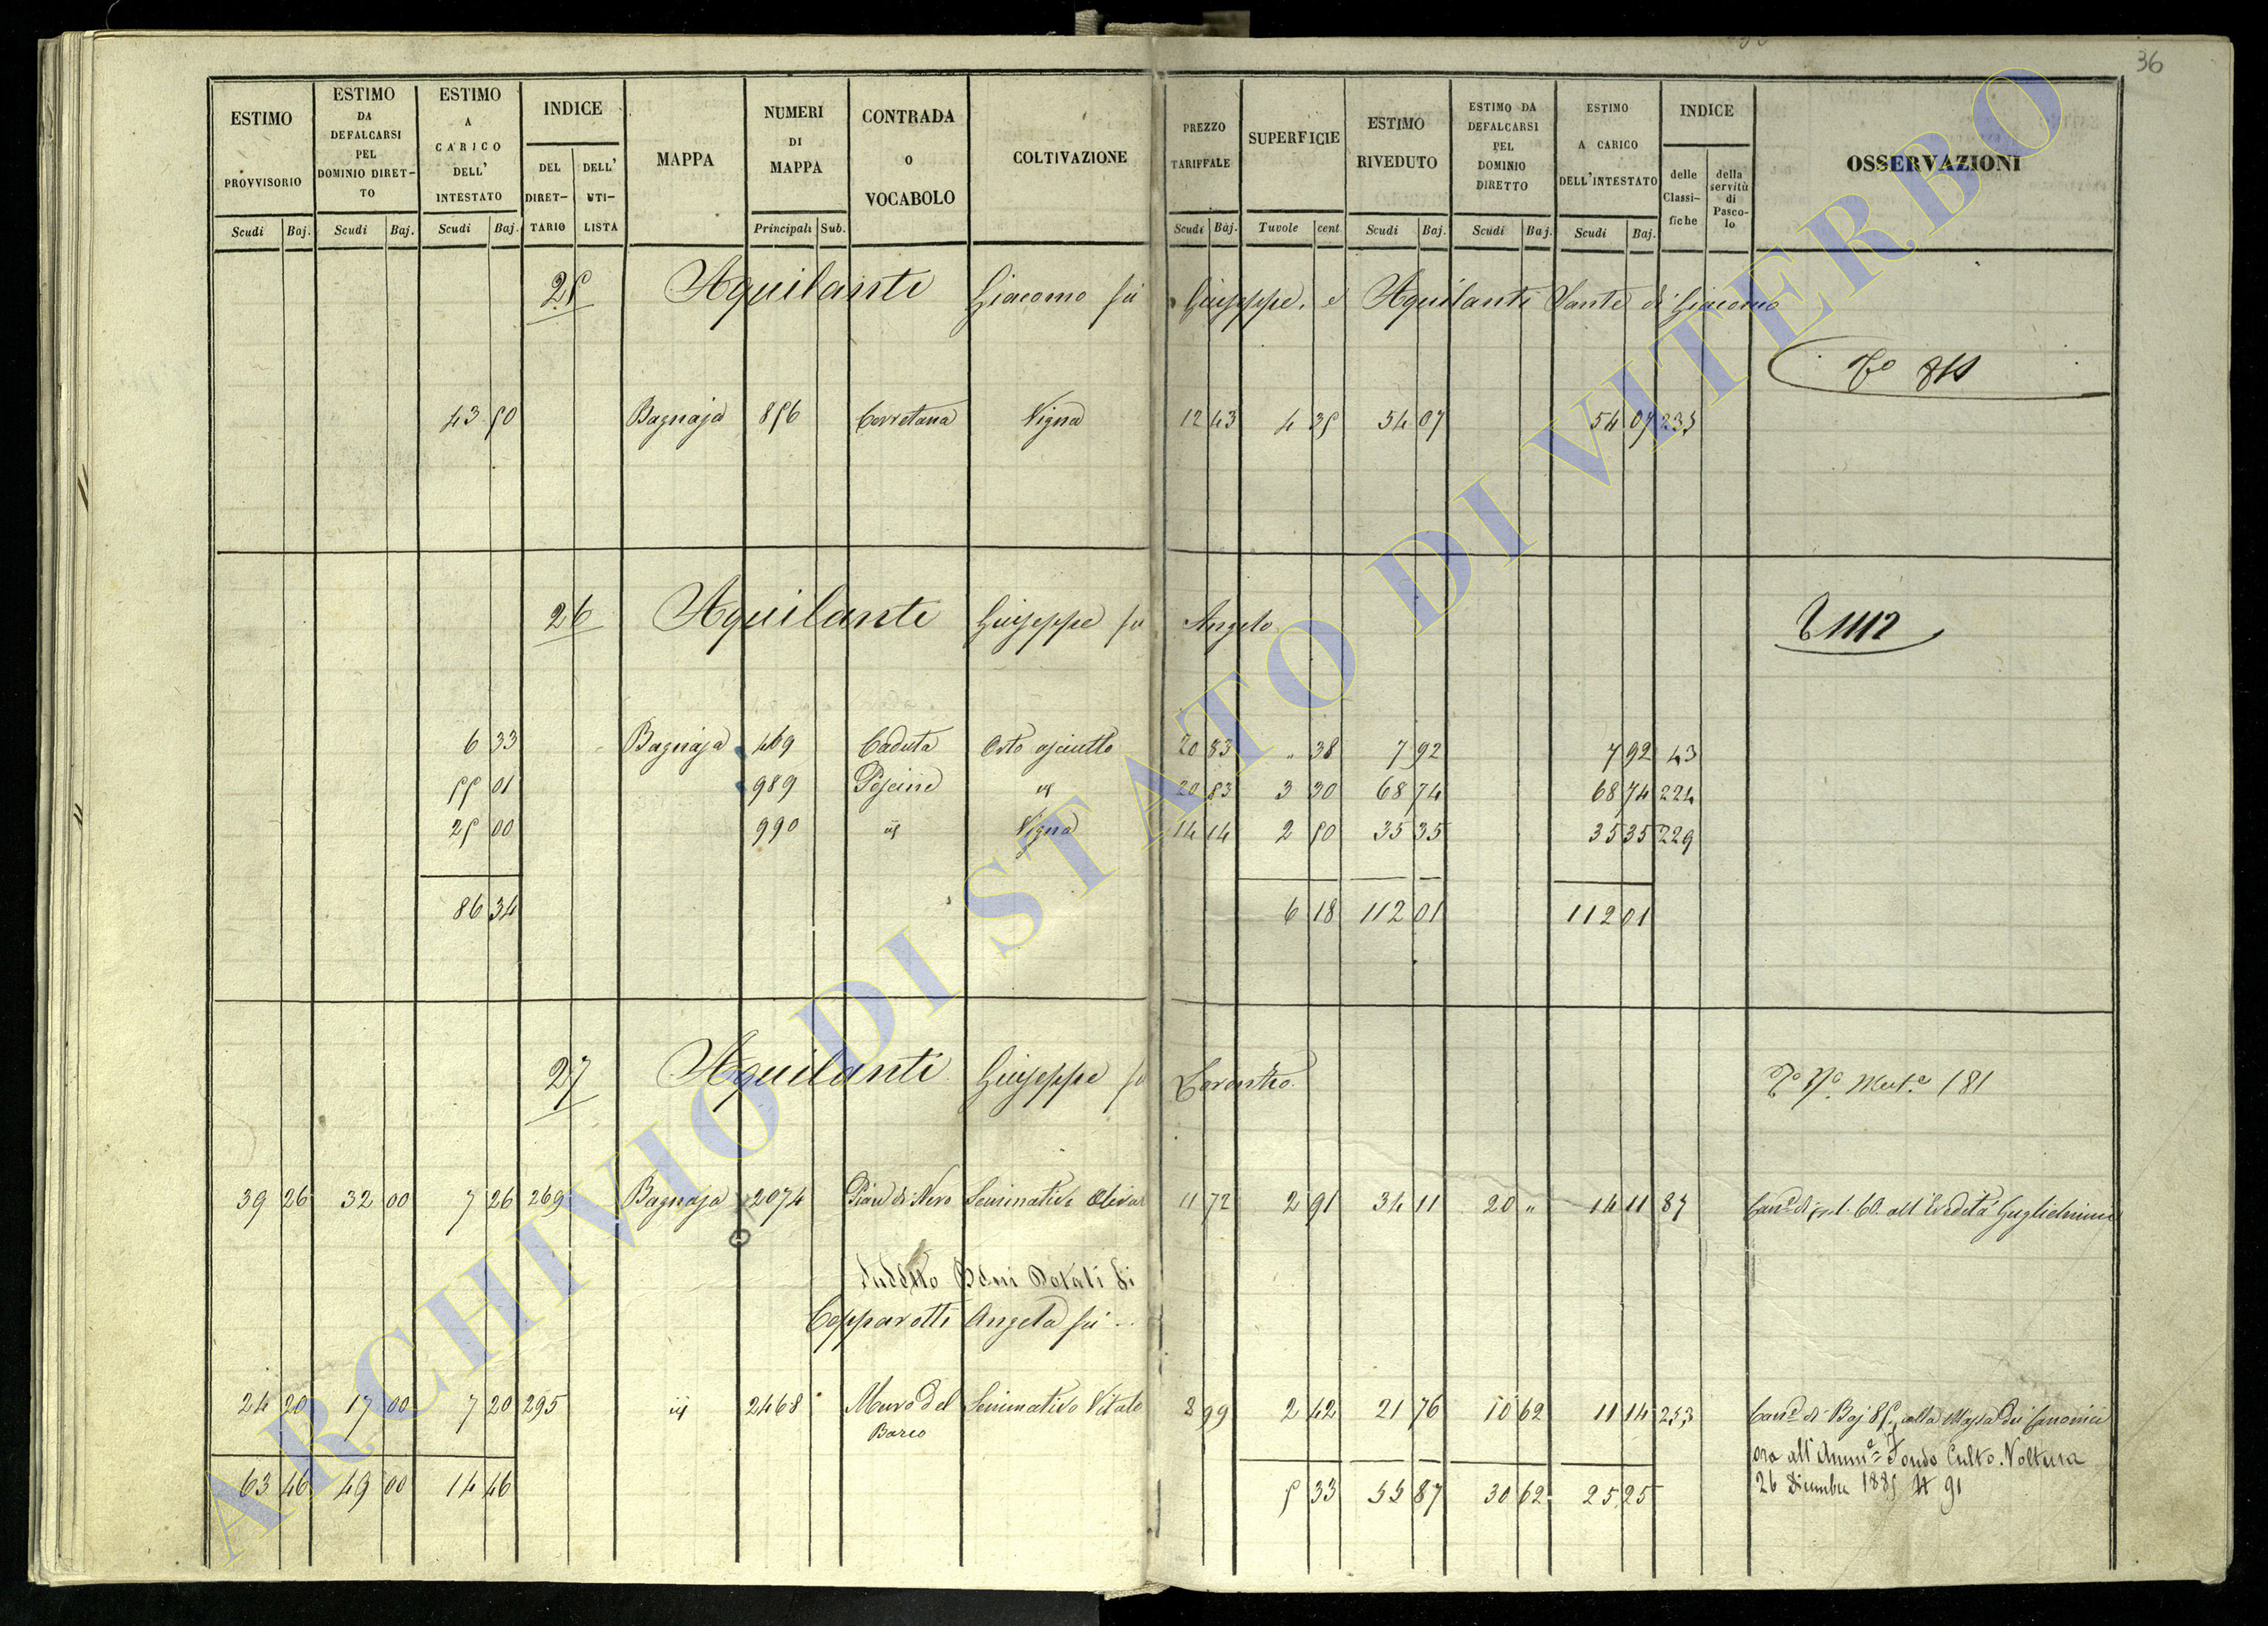 36
ESTIMO PROVVISORIO Scudi Baj.
ESTIMO DA DEFALCARSI PEL DOMINIO DIRET-TO Scudi Baj.
ESTIMO A CARICO DELL' INTESTATO Scudi Baj.
INDICE DEL DIRET-TARIO DELL' UTI-LISTA
MAPPA
NUMERI DI MAPPA Principali Sub.
CONTRADA O VOCABOLO
COLTIVAZIONE
PREZZO TARIFFALE Scudi Baj.
SUPERFICIE Tavole cent
ESTIMO RIVEDUTO Scudi Baj.
ESTIMO DA DEFALCARSI PEL DOMINIO DIRETTO Scudi Baj.
ESTIMO A CARICO DELL'INTESTATO Scudi Baj.
INDICE delle Classi-fiche della servitù di Pasco-lo
OSSERVAZIONI
25 Aquilanti Giacomo fu Giuseppe, e Aquilanti Sante di Giacomo
43 50 Bagnaja 856 Cerretana Vigna 12 43 4 35 54 07 54 07 235
26 Aquilanti Giuseppe fu Angelo
1112
6 33 Bagnaja 469 Caduta Orto asciutto 20 83 " 38 7 92 7 92 43
55 01 989 Pescine id 20 83 3 30 68 74 68 74 224
25 00 990 id Vigna 14 14 2 50 35 35 35 35 229
86 34 6 18 112 01 112 01
27 Aquilanti Giuseppe fu Lorenzo
Mut.e 181
39 26 32 00 7 26 269 Bagnaja 2074 Pian di Nero Seminativo Olivat 11 72 2 91 34 11 20 " 14 11 87 Can.e di 1.60 all'Eredità Guglielmini
Suddetto Beni Dotali di
Capparotti Angela fu ...
24 20 17 00 7 20 295 id 2468 Muro del Barco Seminativo Vitato 8 99 2 42 21 76 10 62 11 14 233 Can.e di Baj 85 alla Massa dei Canonici
ora all'Amm.e Fondo Culto. Voltura
26 Dicembre 1885 N 91
63 46 49 00 14 46 5 33 55 87 30 62 25 25
ARCHIVIO DI STATO DI VITERBO